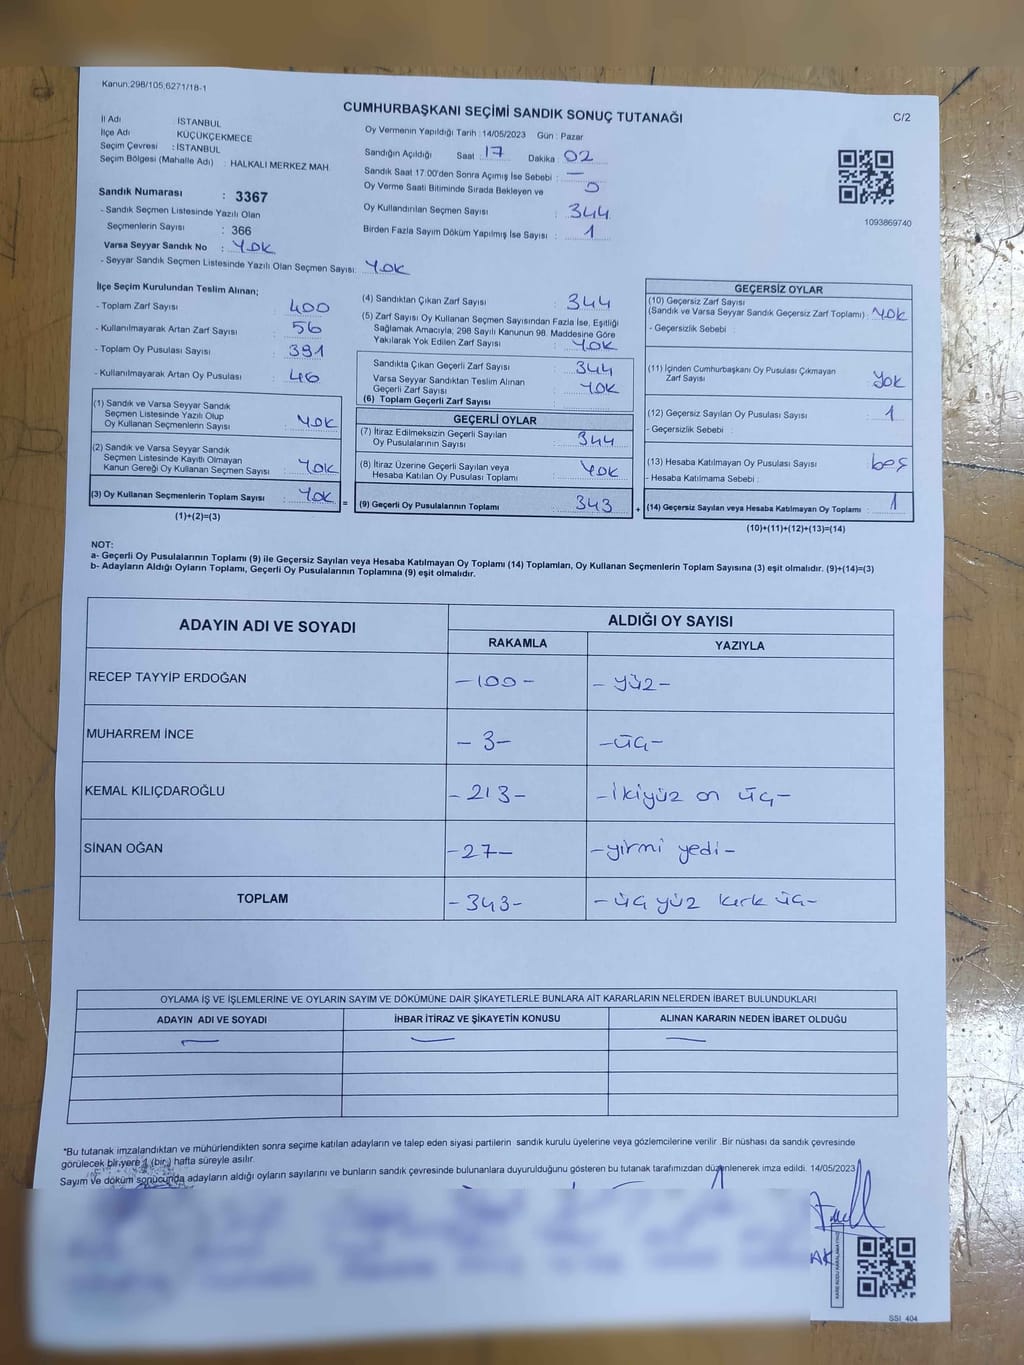 Kanun:298/105,6271/18-1
CUMHURBAŞKANI SEÇİMİ SANDIK SONUÇ TUTANAĞI
C/2
İl Adı : İSTANBUL
İlçe Adı : KÜÇÜKÇEKMECE
Seçim Çevresi : İSTANBUL
Seçim Bölgesi (Mahalle Adı) : HALKALI MERKEZ MAH.
Oy Vermenin Yapıldığı Tarih : 14/05/2023 Gün : Pazar
Sandığın Açıldığı Saat : 17 Dakika : 02
Sandık Saat 17.00'den Sonra Açımış İse Sebebi : —
Oy Verme Saati Bitiminde Sırada Bekleyen ve
Oy Kullandırılan Seçmen Sayısı : 344
Birden Fazla Sayım Döküm Yapılmış İse Sayısı : 1
1093869740
Sandık Numarası : 3367
- Sandık Seçmen Listesinde Yazılı Olan
Seçmenlerin Sayısı : 366
Varsa Seyyar Sandık No : YOK
- Seyyar Sandık Seçmen Listesinde Yazılı Olan Seçmen Sayısı: YOK
İlçe Seçim Kurulundan Teslim Alınan;
- Toplam Zarf Sayısı : 400
- Kullanılmayarak Artan Zarf Sayısı : 56
- Toplam Oy Pusulası Sayısı : 391
- Kullanılmayarak Artan Oy Pusulası : 46
(1) Sandık ve Varsa Seyyar Sandık
Seçmen Listesinde Yazılı Olup
Oy Kullanan Seçmenlerin Sayısı : YOK
(2) Sandık ve Varsa Seyyar Sandık
Seçmen Listesinde Kayıtlı Olmayan
Kanun Gereği Oy Kullanan Seçmen Sayısı : YOK
(3) Oy Kullanan Seçmenlerin Toplam Sayısı : YOK =
(1)+(2)=(3)
(4) Sandıktan Çıkan Zarf Sayısı : 344
(5) Zarf Sayısı Oy Kullanan Seçmen Sayısından Fazla İse, Eşitliği
Sağlamak Amacıyla; 298 Sayılı Kanunun 98. Maddesine Göre
Yakılarak Yok Edilen Zarf Sayısı : YOK
Sandıkta Çıkan Geçerli Zarf Sayısı : 344
Varsa Seyyar Sandıktan Teslim Alınan
Geçerli Zarf Sayısı : YOK
(6) Toplam Geçerli Zarf Sayısı
GEÇERLİ OYLAR
(7) İtiraz Edilmeksizin Geçerli Sayılan
Oy Pusulalarının Sayısı : 344
(8) İtiraz Üzerine Geçerli Sayılan veya
Hesaba Katılan Oy Pusulası Toplamı : YOK
(9) Geçerli Oy Pusulalarının Toplamı : 343 +
GEÇERSİZ OYLAR
(10) Geçersiz Zarf Sayısı
(Sandık ve Varsa Seyyar Sandık Geçersiz Zarf Toplamı) : YOK
- Geçersizlik Sebebi :
(11) İçinden Cumhurbaşkanı Oy Pusulası Çıkmayan
Zarf Sayısı : Yok
(12) Geçersiz Sayılan Oy Pusulası Sayısı : 1
- Geçersizlik Sebebi :
(13) Hesaba Katılmayan Oy Pusulası Sayısı : beş
- Hesaba Katılmama Sebebi :
(14) Geçersiz Sayılan veya Hesaba Katılmayan Oy Toplamı : 1
(10)+(11)+(12)+(13)=(14)
NOT:
a- Geçerli Oy Pusulalarının Toplamı (9) ile Geçersiz Sayılan veya Hesaba Katılmayan Oy Toplamı (14) Toplamları, Oy Kullanan Seçmenlerin Toplam Sayısına (3) eşit olmalıdır. (9)+(14)=(3)
b- Adayların Aldığı Oyların Toplamı, Geçerli Oy Pusulalarının Toplamına (9) eşit olmalıdır.
ADAYIN ADI VE SOYADI
ALDIĞI OY SAYISI
RAKAMLA YAZIYLA
RECEP TAYYİP ERDOĞAN -100- -yüz-
MUHARREM İNCE -3- -üç-
KEMAL KILIÇDAROĞLU -213- -ikiyüz on üç-
SİNAN OĞAN -27- -yirmi yedi-
TOPLAM -343- -üç yüz kırk üç-
OYLAMA İŞ VE İŞLEMLERİNE VE OYLARIN SAYIM VE DÖKÜMÜNE DAİR ŞİKAYETLERLE BUNLARA AİT KARARLARIN NELERDEN İBARET BULUNDUKLARI
ADAYIN ADI VE SOYADI İHBAR İTİRAZ VE ŞİKAYETİN KONUSU ALINAN KARARIN NEDEN İBARET OLDUĞU
— — —
*Bu tutanak imzalandıktan ve mühürlendikten sonra seçime katılan adayların ve talep eden siyasi partilerin sandık kurulu üyelerine veya gözlemcilerine verilir .Bir nüshası da sandık çevresinde
görülecek bir yere 1 (bir) hafta süreyle asılır.
Sayım ve döküm sonucunda adayların aldığı oyların sayılarını ve bunların sandık çevresinde bulunanlara duyurulduğunu gösteren bu tutanak tarafımızdan düzenlenerek imza edildi. 14/05/2023
KARE KODU KARALAMAYINIZ
SSI 404